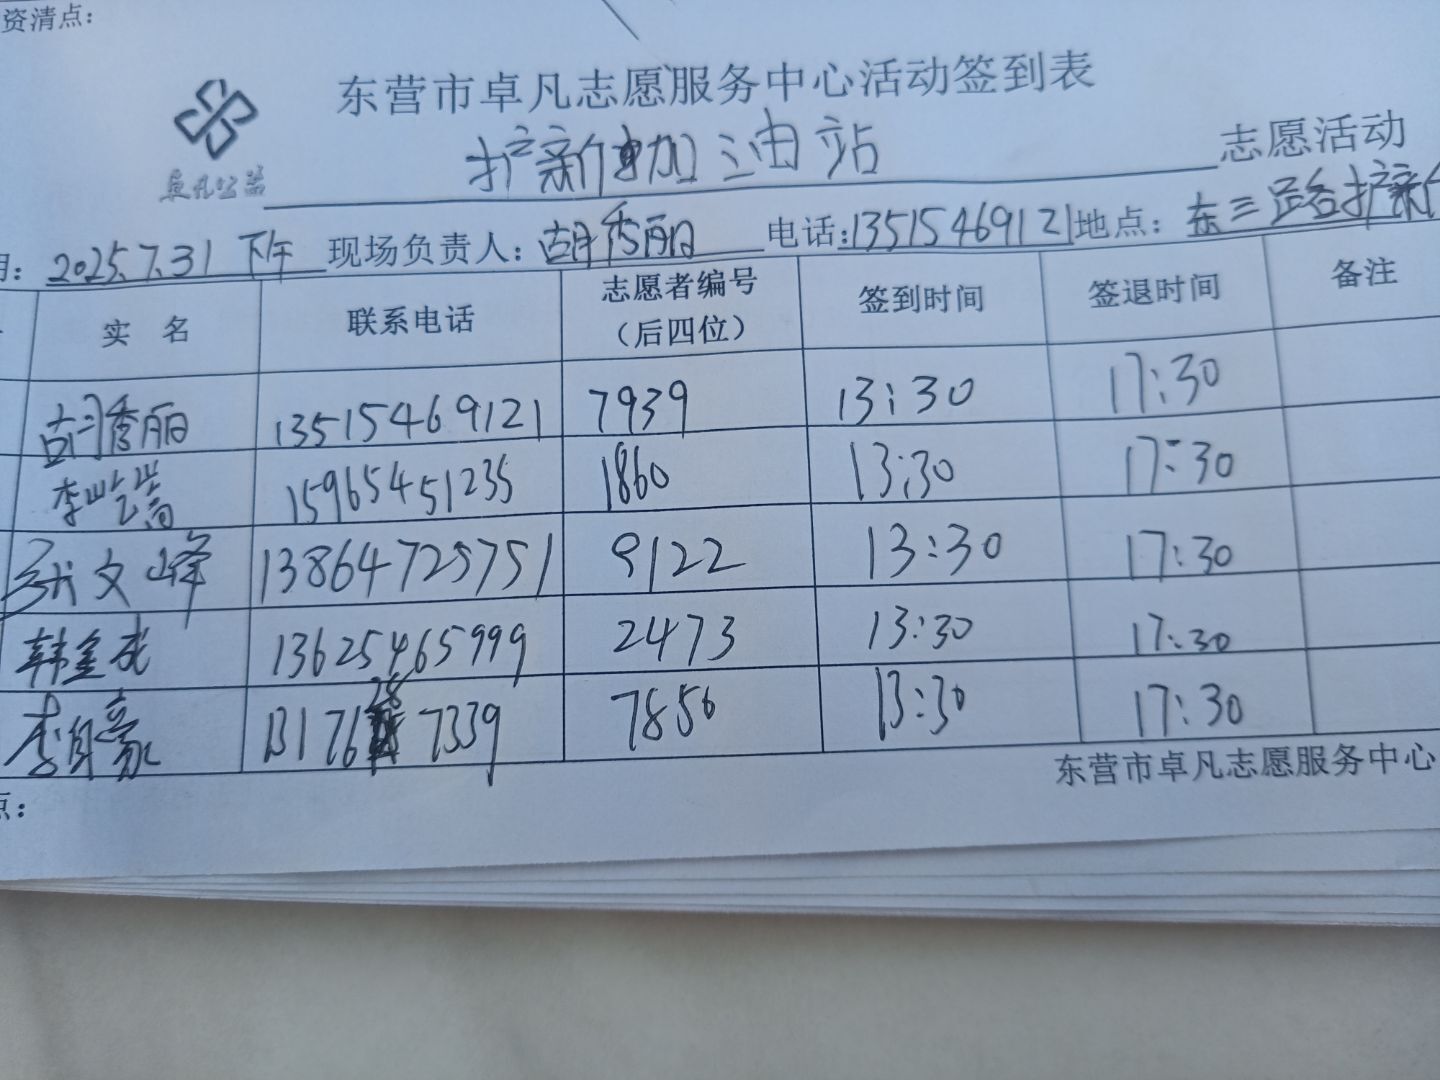 资清点：
东营市卓凡志愿服务中心活动签到表
卓凡公益
护新加油站 志愿活动
期：2025.7.31 下午 现场负责人：胡秀丽 电话：13515469121 地点：东三路护新
实 名 联系电话 志愿者编号（后四位） 签到时间 签退时间 备注
胡秀丽 13515469121 7939 13:30 17:30
李 15965451235 1860 13:30 17:30
文峰 13864725751 9122 13:30 17:30
韩金成 13625465999 2473 13:30 17:30
李自豪 13176287339 7856 13:30 17:30
东营市卓凡志愿服务中心
点：